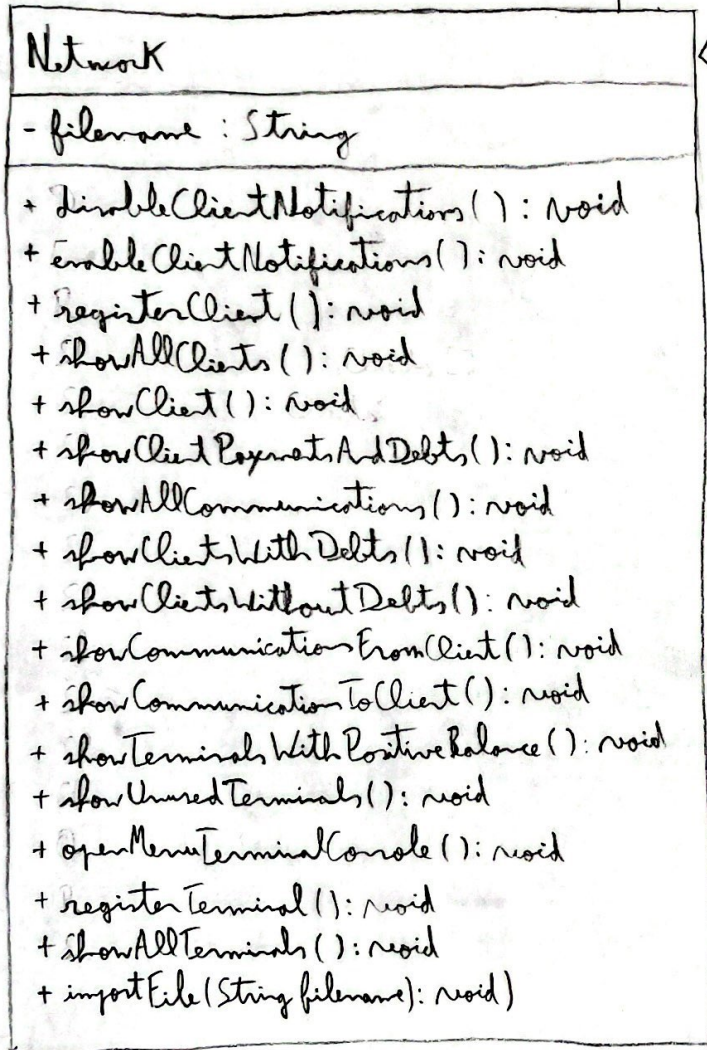 Network
- filename : String
+ disableClientNotifications() : void
+ enableClientNotifications() : void
+ registerClient() : void
+ showAllClients() : void
+ showClient() : void
+ showClientPaymentsAndDebts() : void
+ showAllCommunications() : void
+ showClientsWithDebts() : void
+ showClientsWithoutDebts() : void
+ showCommunicationsFromClient() : void
+ showCommunicationsToClient() : void
+ showTerminalsWithPositiveBalance() : void
+ showUnusedTerminals() : void
+ openMenuTerminalConsole() : void
+ registerTerminal() : void
+ showAllTerminals() : void
+ importFile(String filename): void)